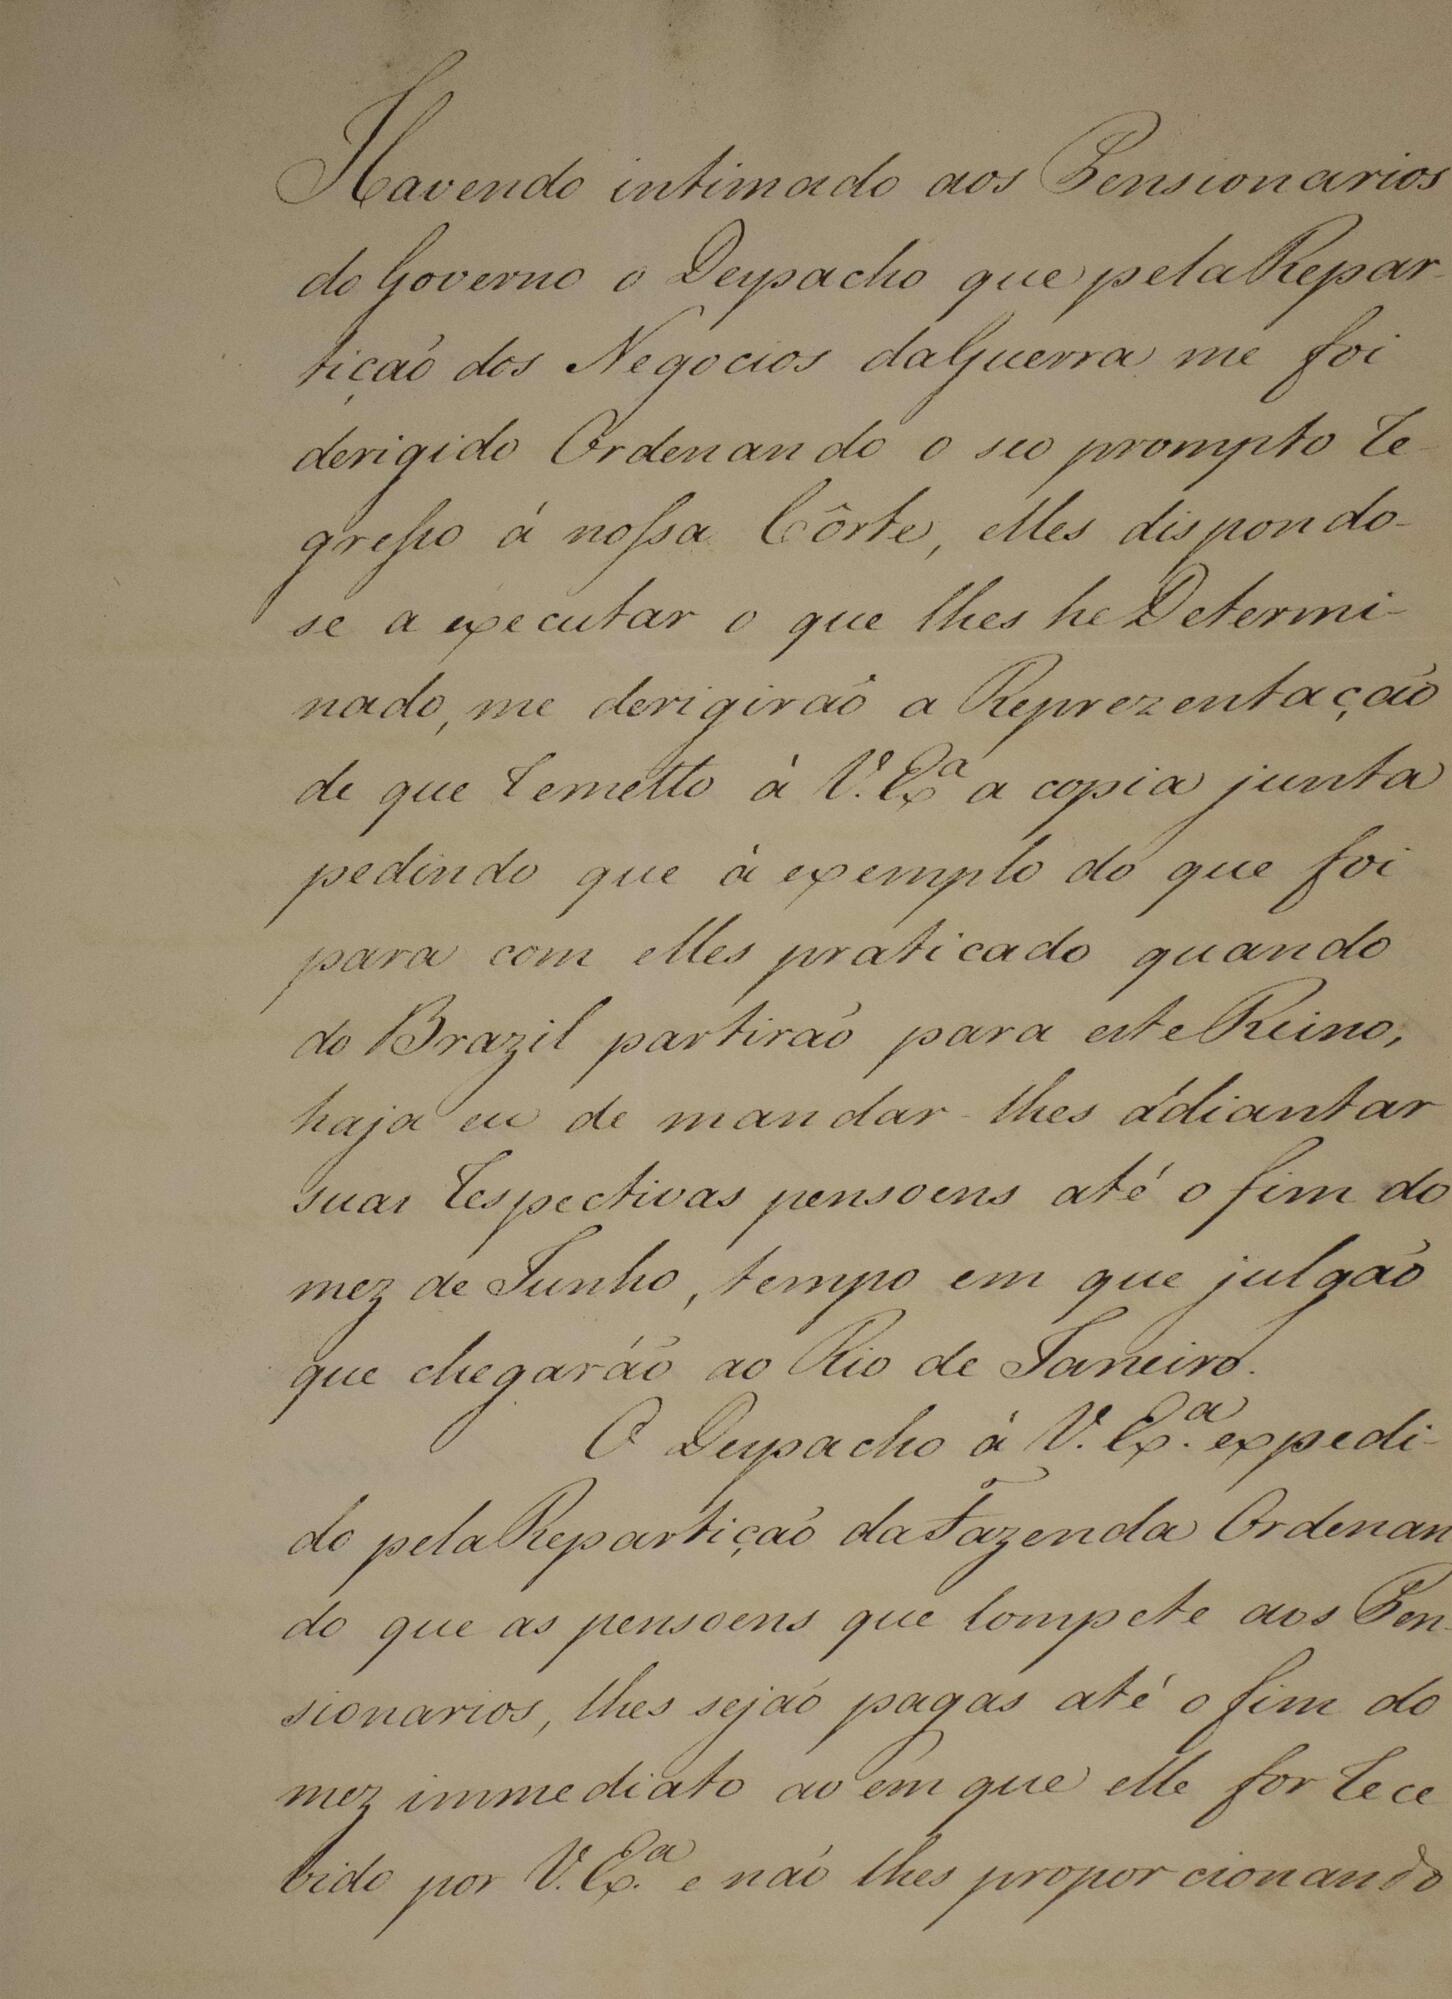 Havendo intimado aos Pensionarios
do Governo o Despacho que pela Repar-
tição dos Negocios da Guerra me foi
derigido Ordenando o seo prompto re-
gresso á nossa Côrte, elles dispondo-
se a executar o que lhes he Determi-
nado, me derigirão a Reprezentação
de que remetto á V. Ex.ª a copia junta
pedindo que á exemplo do que foi
para com elles praticado quando
do Brazil partirão para este Reino,
haja eu de mandar-lhes ádiantar
suas respectivas pensoens até o fim do
mez de Junho, tempo em que julgão
que chegaráõ ao Rio de Janeiro.
O Despacho á V. Ex.ª expedi-
do pela Repartição da Fazenda Ordenan
do que as pensoens que compete aos Pen-
sionarios, lhes sejão pagas até o fim do
mez immediato ao em que elle for rece
bido por V. Ex.ª e não lhes proporcionando